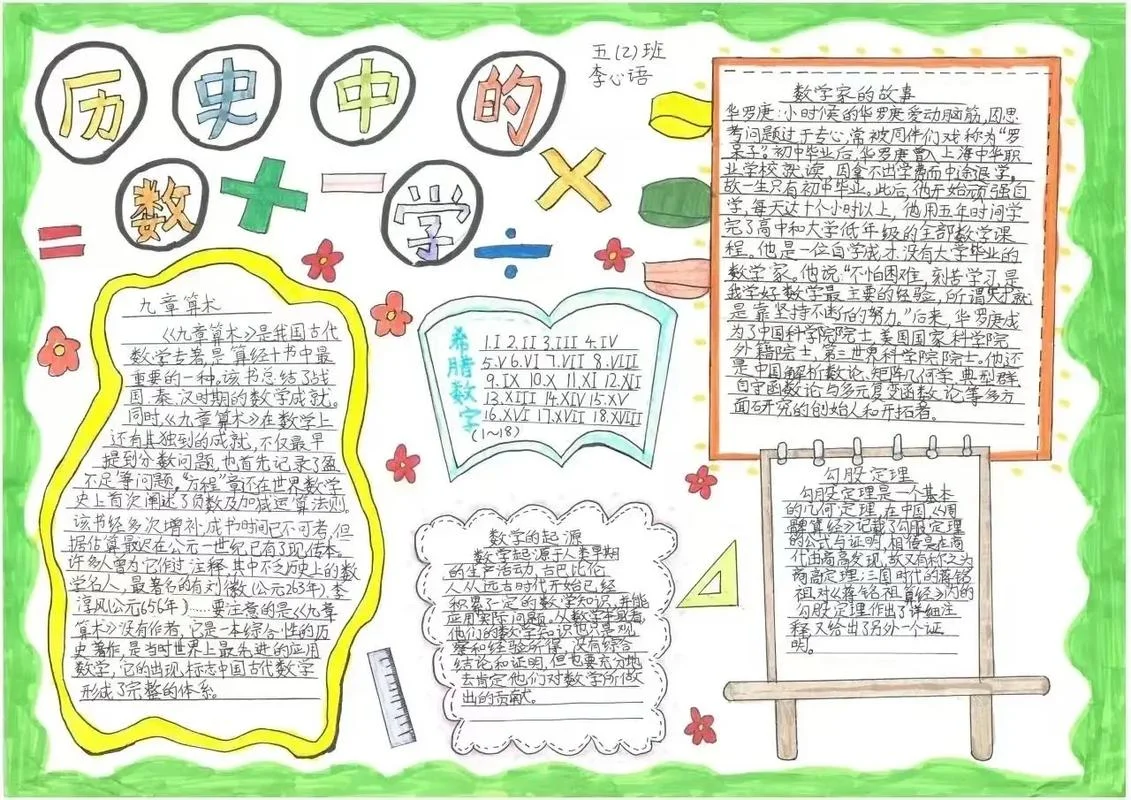 历史中的
数学
五(2)班
李心语
九章算术
《九章算术》是我国古代
数学专著,是算经十书中最
重要的一种。该书总结了战
国、秦、汉时期的数学成就。
同时,《九章算术》在数学上
还有其独到的成就,不仅最早
提到分数问题,也首先记录了盈
不足等问题,"方程"章还在世界数学
史上首次阐述了负数及加减运算法则。
该书经多次增补,成书时间已不可考,但
据估算最迟在公元一世纪已有了现传本。
许多人曾为它作过注释,其中不乏历史上的数
学名人,最著名的有刘徽(公元263年),李
淳风(公元656年)……要注意的是《九章
算术》没有作者,它是一本综合性的历
史著作,是当时世界上最先进的应用
数学,它的出现,标志中国古代数学
形成了完整的体系。
希腊数字
1.I 2.II 3.III 4.IV
5.V 6.VI 7.VII 8.VIII
9.IX 10.X 11.XI 12.XII
13.XIII 14.XIV 15.XV
16.XVI 17.XVII 18.XVIII
(1~18)
数学的起源
数学起源于人类早期
的生产活动,古巴比伦
人从远古时代开始已经
积累了一定的数学知识,并能
应用实际问题。从数学本身看,
他们的数学知识也只是观
察和经验所得,没有综合
结论和证明,但也要充分地
去肯定他们对数学所做
出的贡献。
数学家的故事
华罗庚:小时候的华罗庚爱动脑筋,因思
考问题过于专心,常被同伴们戏称为"罗
呆子"。初中毕业后,华罗庚曾入上海中华职
业学校就读,因拿不出学费而中途退学,
故一生只有初中毕业。此后,他开始顽强自
学,每天达十个小时以上,他用五年时间学
完了高中和大学低年级的全部数学课
程。他是一位自学成才、没有大学毕业的
数学家。他说:"不怕困难,刻苦学习,是
我学好数学最主要的经验,所谓天才就
是靠坚持不断的努力。"后来,华罗庚成
为了中国科学院院士,美国国家科学院
外籍院士,第三世界科学院院士。他还
是中国解析数论、矩阵几何学、典型群、
自守函数论与多元复变函数论等多方
面研究的创始人和开拓者。
勾股定理
勾股定理是一个基本
的几何定理,在中国,《周
髀算经》记载了勾股定理
的公式与证明,相传是在商
代由商高发现,故又有称之为
商高定理;三国时代的蒋铭
祖对《蒋铭祖算经》内的
勾股定理作出了详细注
释,又给出了另外一个证
明。